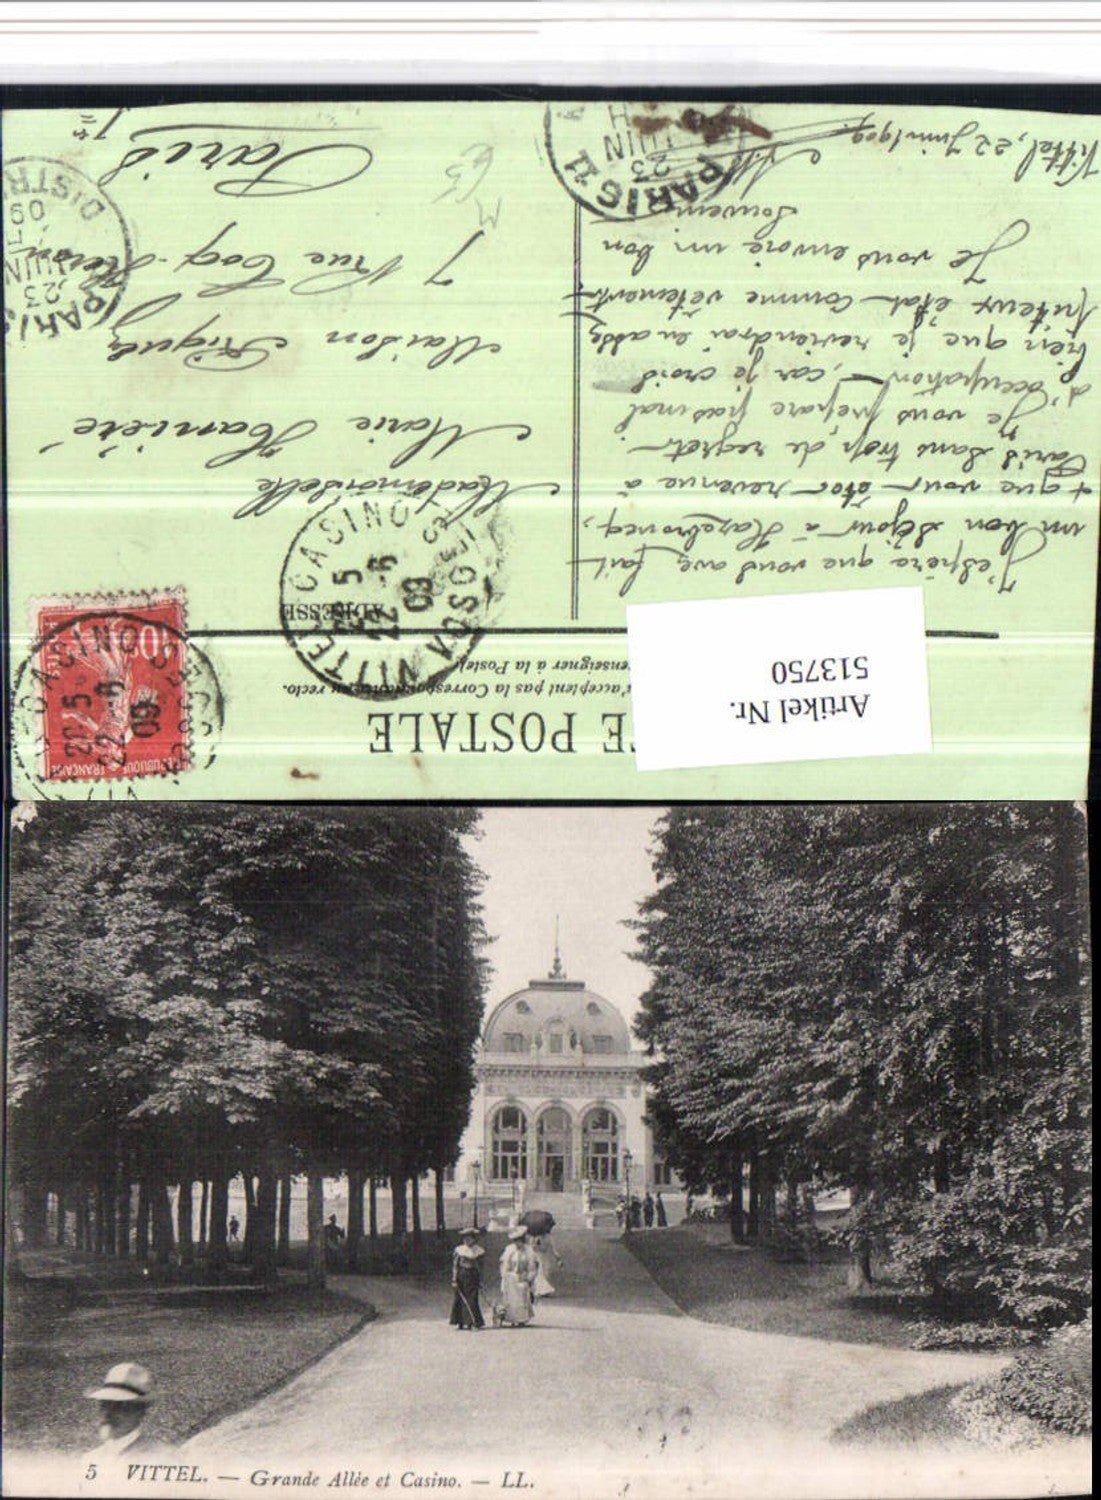 CARTE POSTALE
n'acceptent pas la Correspondance au recto.
renseigner à la Poste
ADRESSE
Artikel Nr.
513750
VITTEL CASINO VOSGES
20 5
22 -6
09
CASINO
20 5
22 -6
09
RÉPUBLIQUE FRANÇAISE
10
Mademoiselle
Marie
Maison
7 rue Coq-Héron
Paris
1er
PARIS
23
JUIN
09
DISTR
PARIS 11
23
JUIN
Vittel, 22 Juin 1909
J'espère que vous avez fait
un bon séjour à Hazebroucq,
+ que vous êtes revenue à
Paris sans trop de regret.
Je vous prépare pas mal
d'occupation, car je crois
bien que je reviendrai en assez
piteux état comme vêtements
Je vous envoie un bon
souvenir
5 VITTEL. — Grande Allée et Casino. — LL.